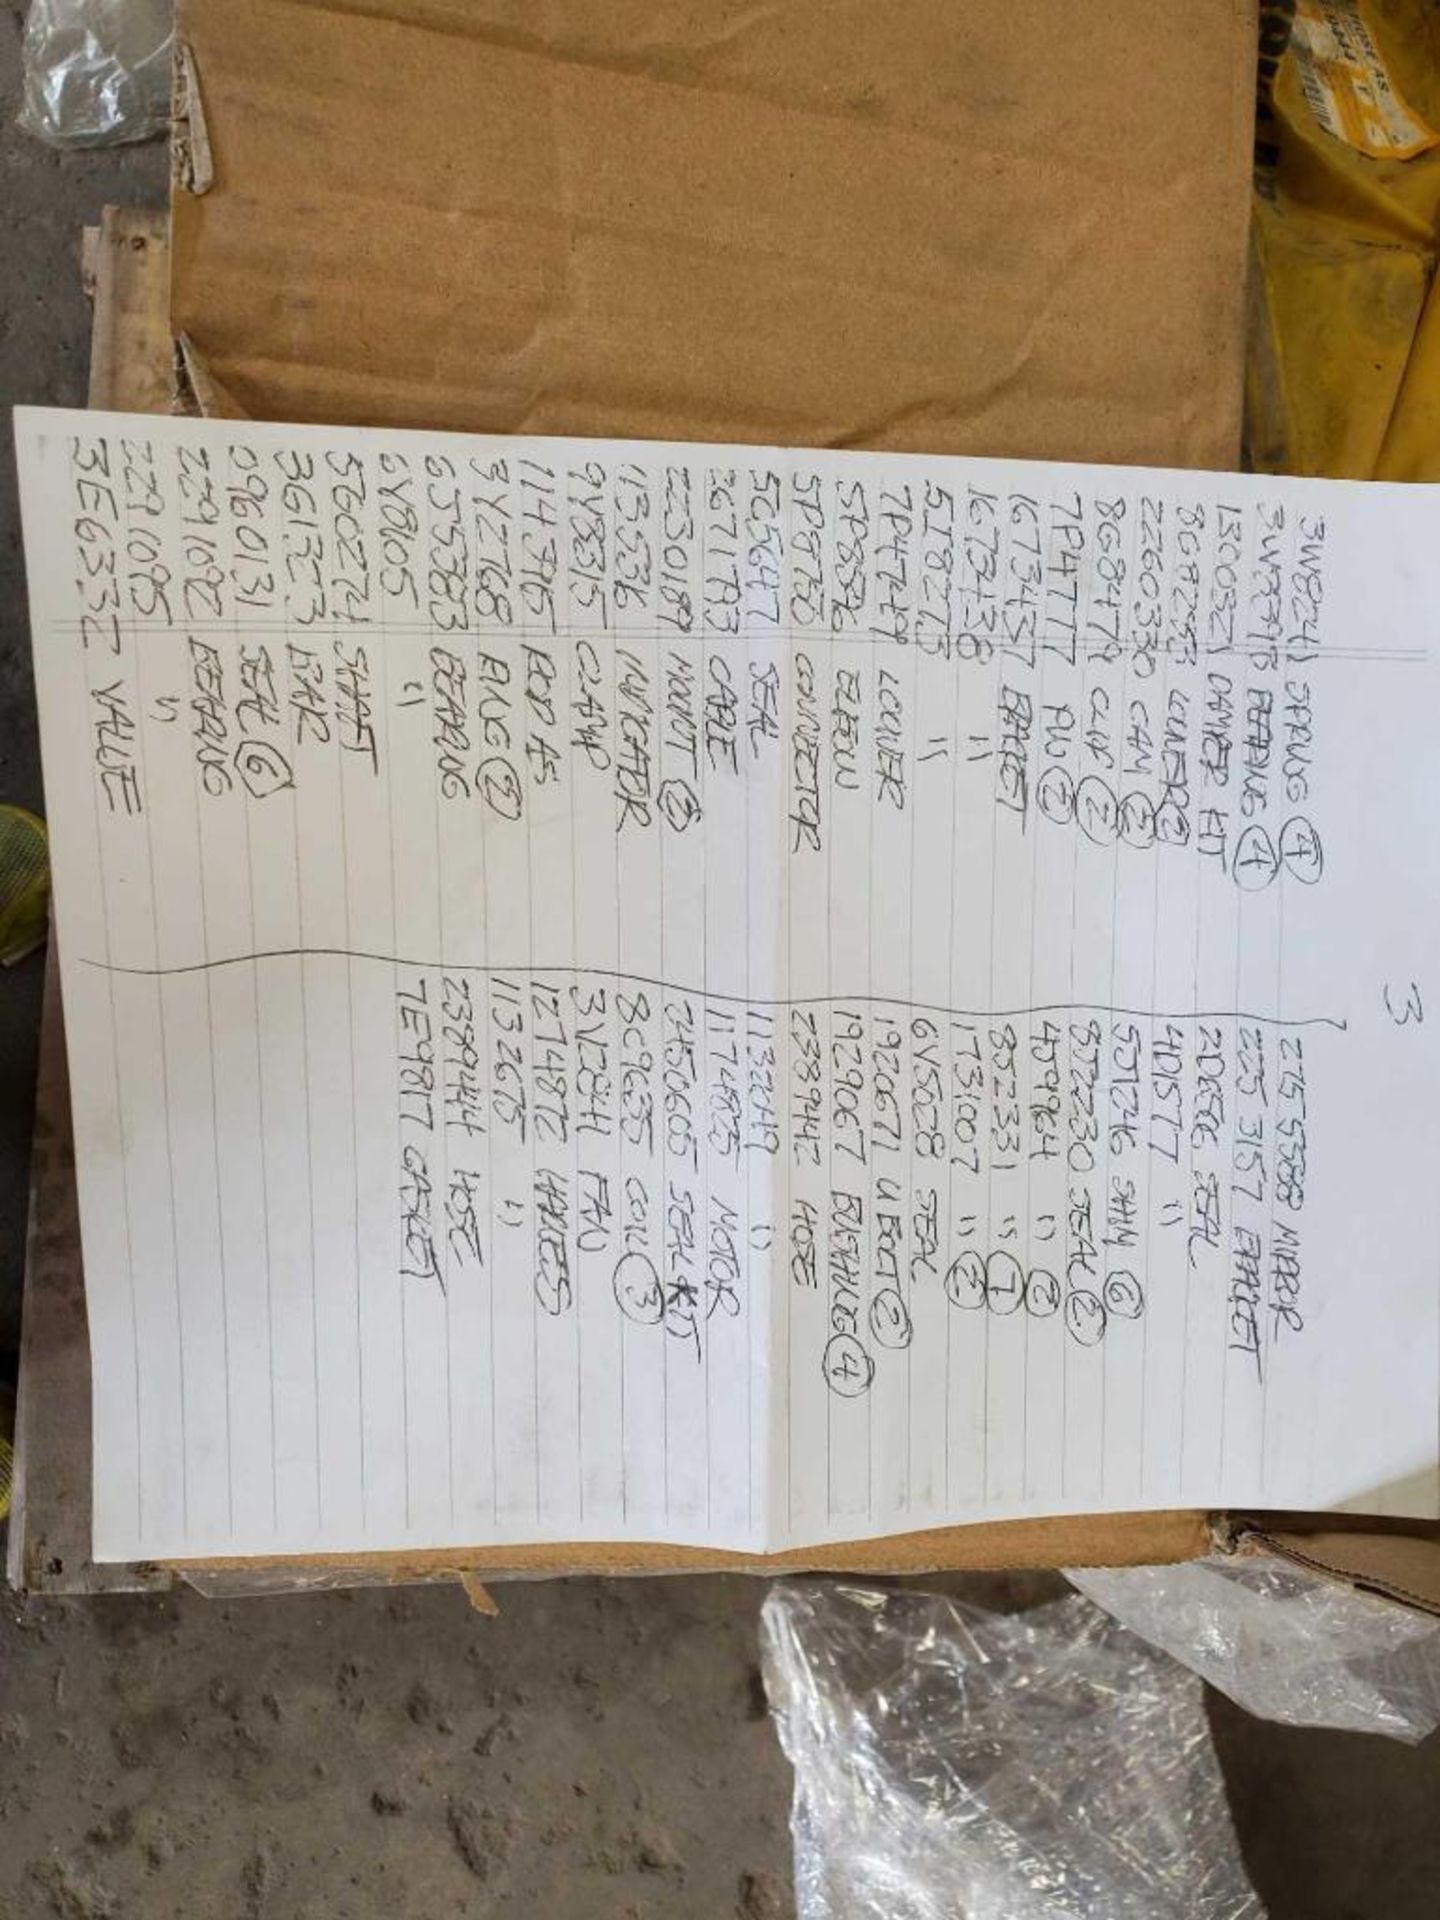 3
3V8241 SPRING 4
3W3793 BEARING 4
1300321 DAMPER KIT
8G8253 LOUVER 2
2260330 CAM 2
8G8479 CLIP 2
7P4777 PIN 2
1673437 BRACKET
1673438 "
5I8275 "
7P4749 LOUVER
5P8896 ELBOW
5P8750 CONNECTOR
5G5647 SEAL
2671793 CABLE
2230189 MOUNT 3
1135336 INVIGATOR
9Y8315 CLAMP
1143795 ROD AS
3Y2768 PLUG 2
6J5383 BEARING
6Y8105 "
5G0274 SHAFT
3G1323 BAR
0960131 SEAL 6
2291092 BEARING
2291095 "
3E6332 VALUE
2755388 MIRROR
2253157 BRACKET
2D6586 SEAL
4D1577 "
5J1246 SHIM 6
8J2230 SEAL 2
4599964 " 2
8S2331 " 7
1731007 " 2
6V5028 SEAL
1920671 U BOLT 2
1929067 BUSHING 4
2389442 HOSE
1132049 "
1174825 MOTOR
2450605 SEAL KIT
8C9635 COIL 3
3V2844 FAN
1274872 HARNESS
1132675 "
2389444 HOSE
7E9817 GASKET